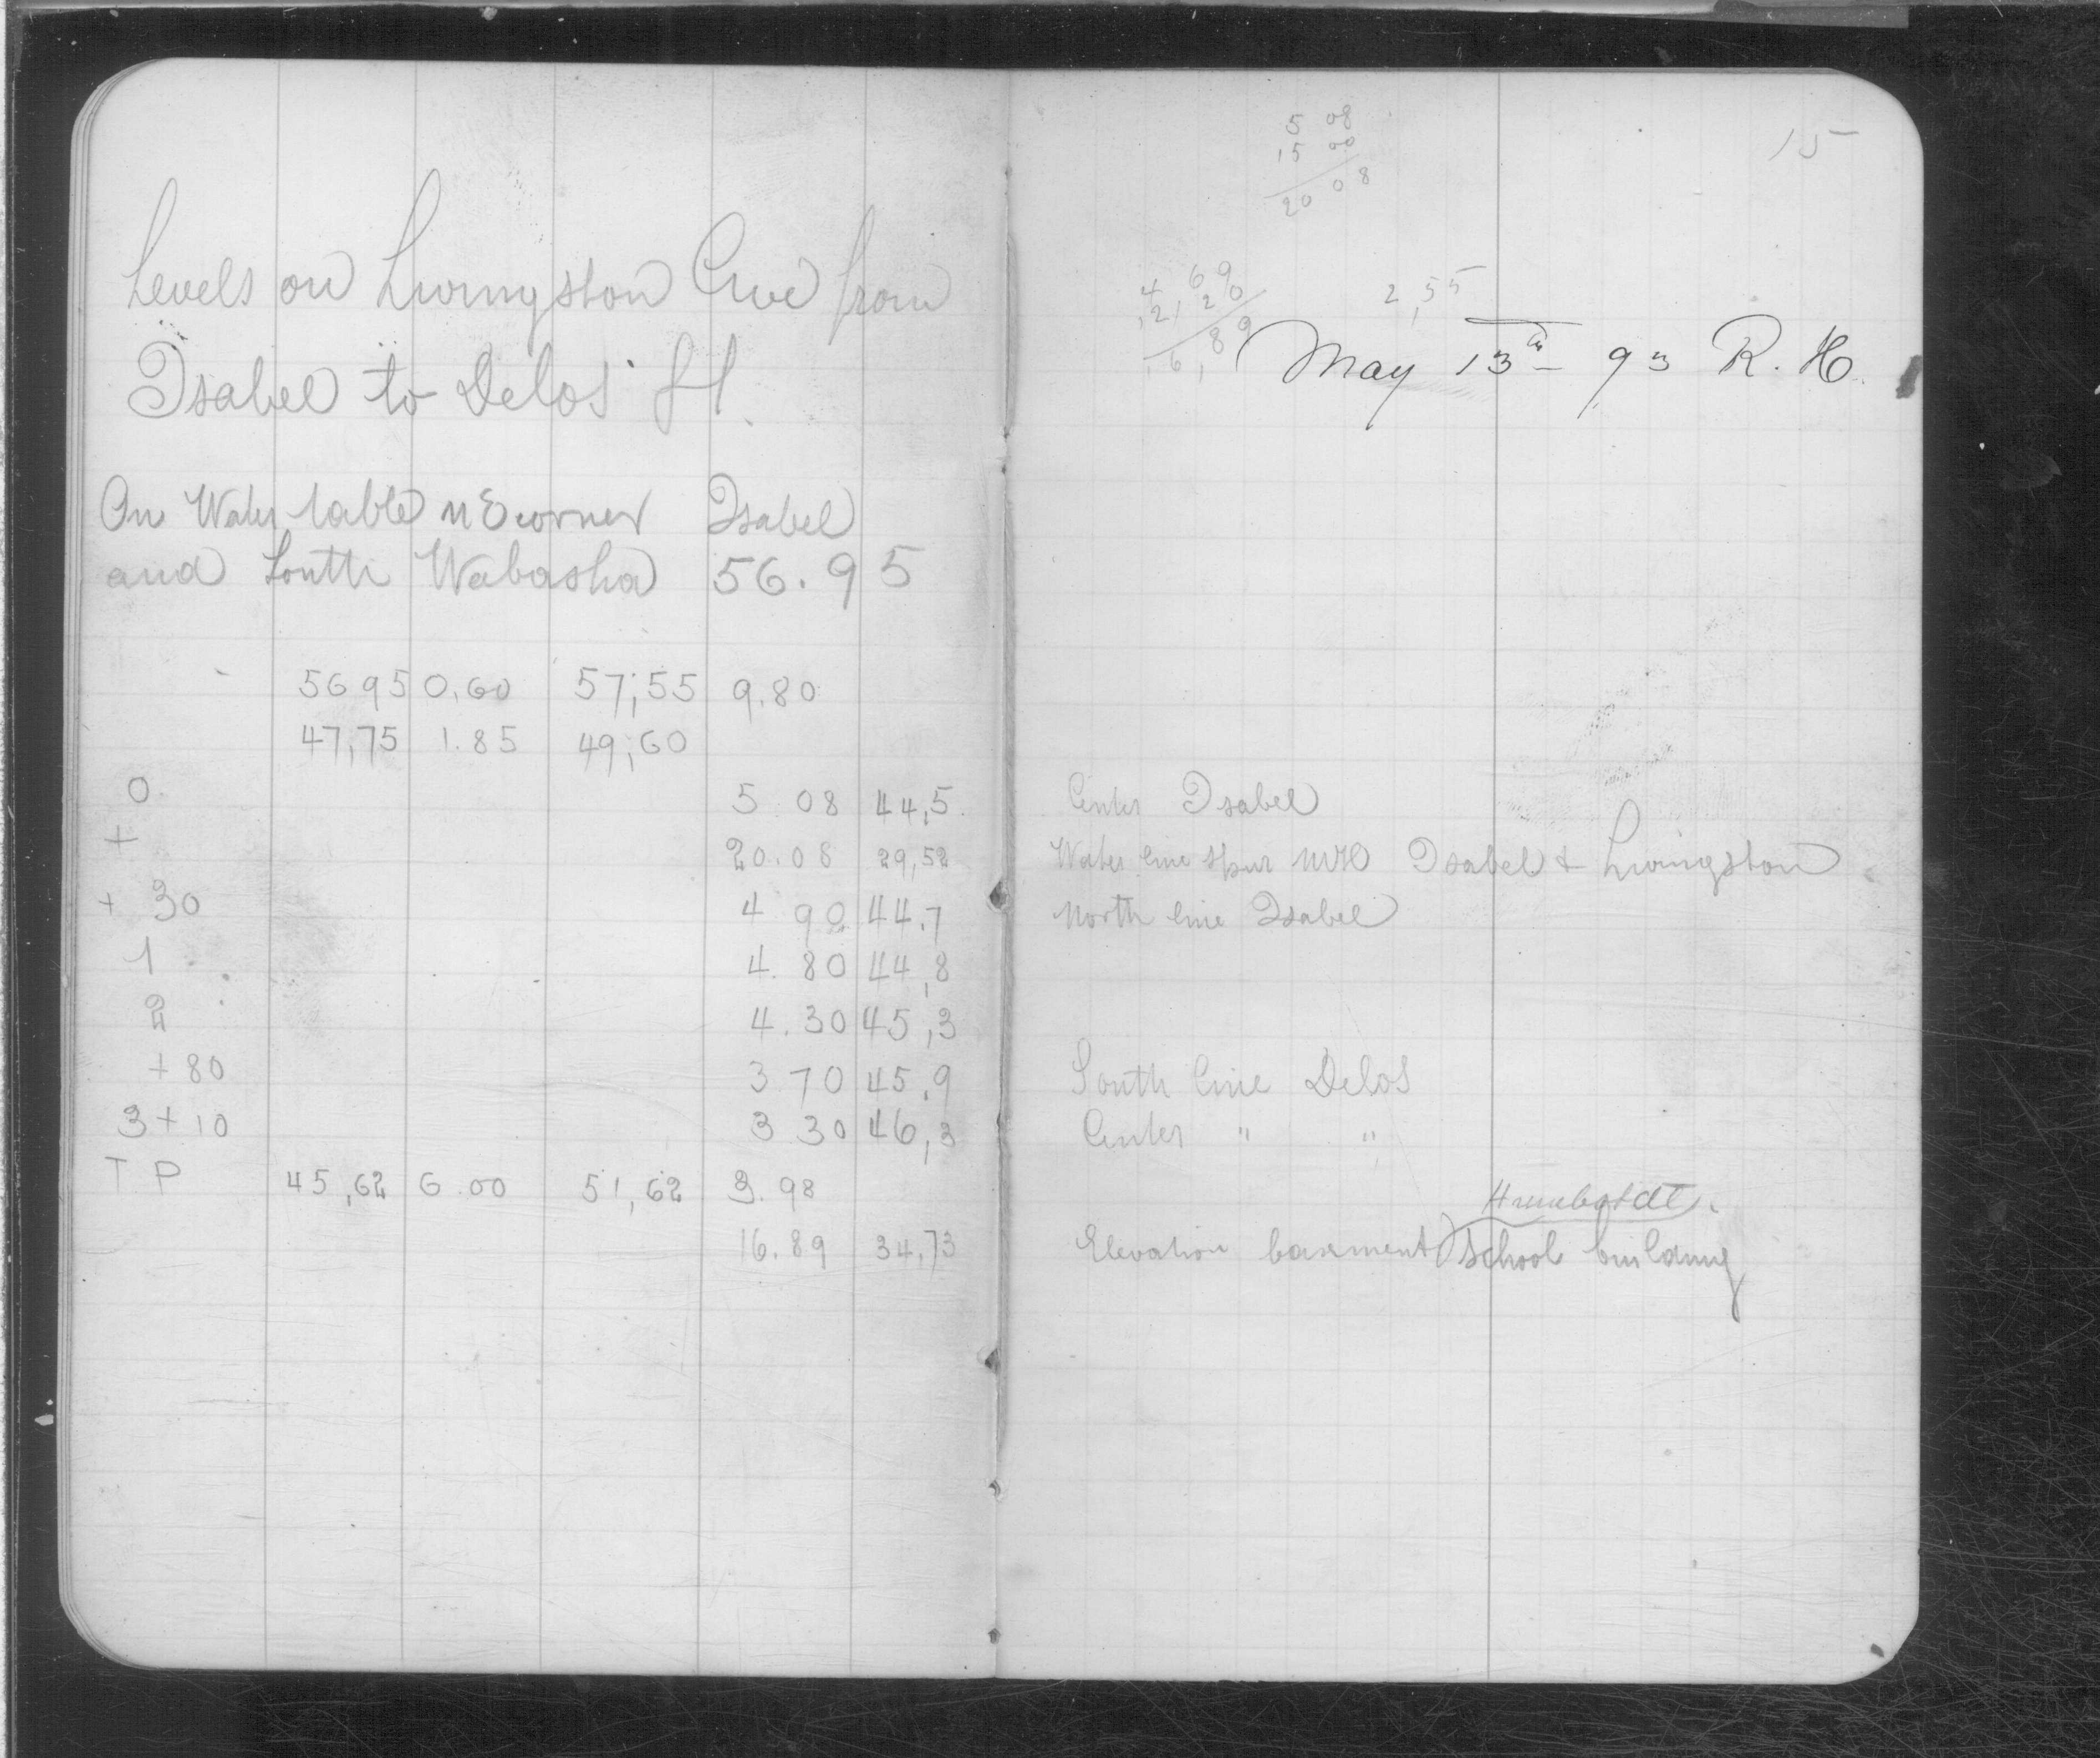 Levels on Livingston Ave from
Isabel to Delos St.
On Water table N E corner Isabel
and South Wabasha 56.95
56 95 0.60 57,55 9.80
47,75 1.85 49,60
0 5 08 44,5
+ 20.08 29,52
+ 30 4 90 44.7
1 4.80 44,8
2 4.30 45,3
+80 3 70 45.9
3+10 3 30 46,3
T P 45,62 6.00 51,62 3.98
16.89 34,73
15
5 08
15 00
20 08
4 69
12,20
16,89
2,55
May 13th 93 R. H.
Center Isabel
Water line spur MH Isabel & Livingston
North line Isabel
South line Delos
Center " "
Humboldt
Elevation basement School building